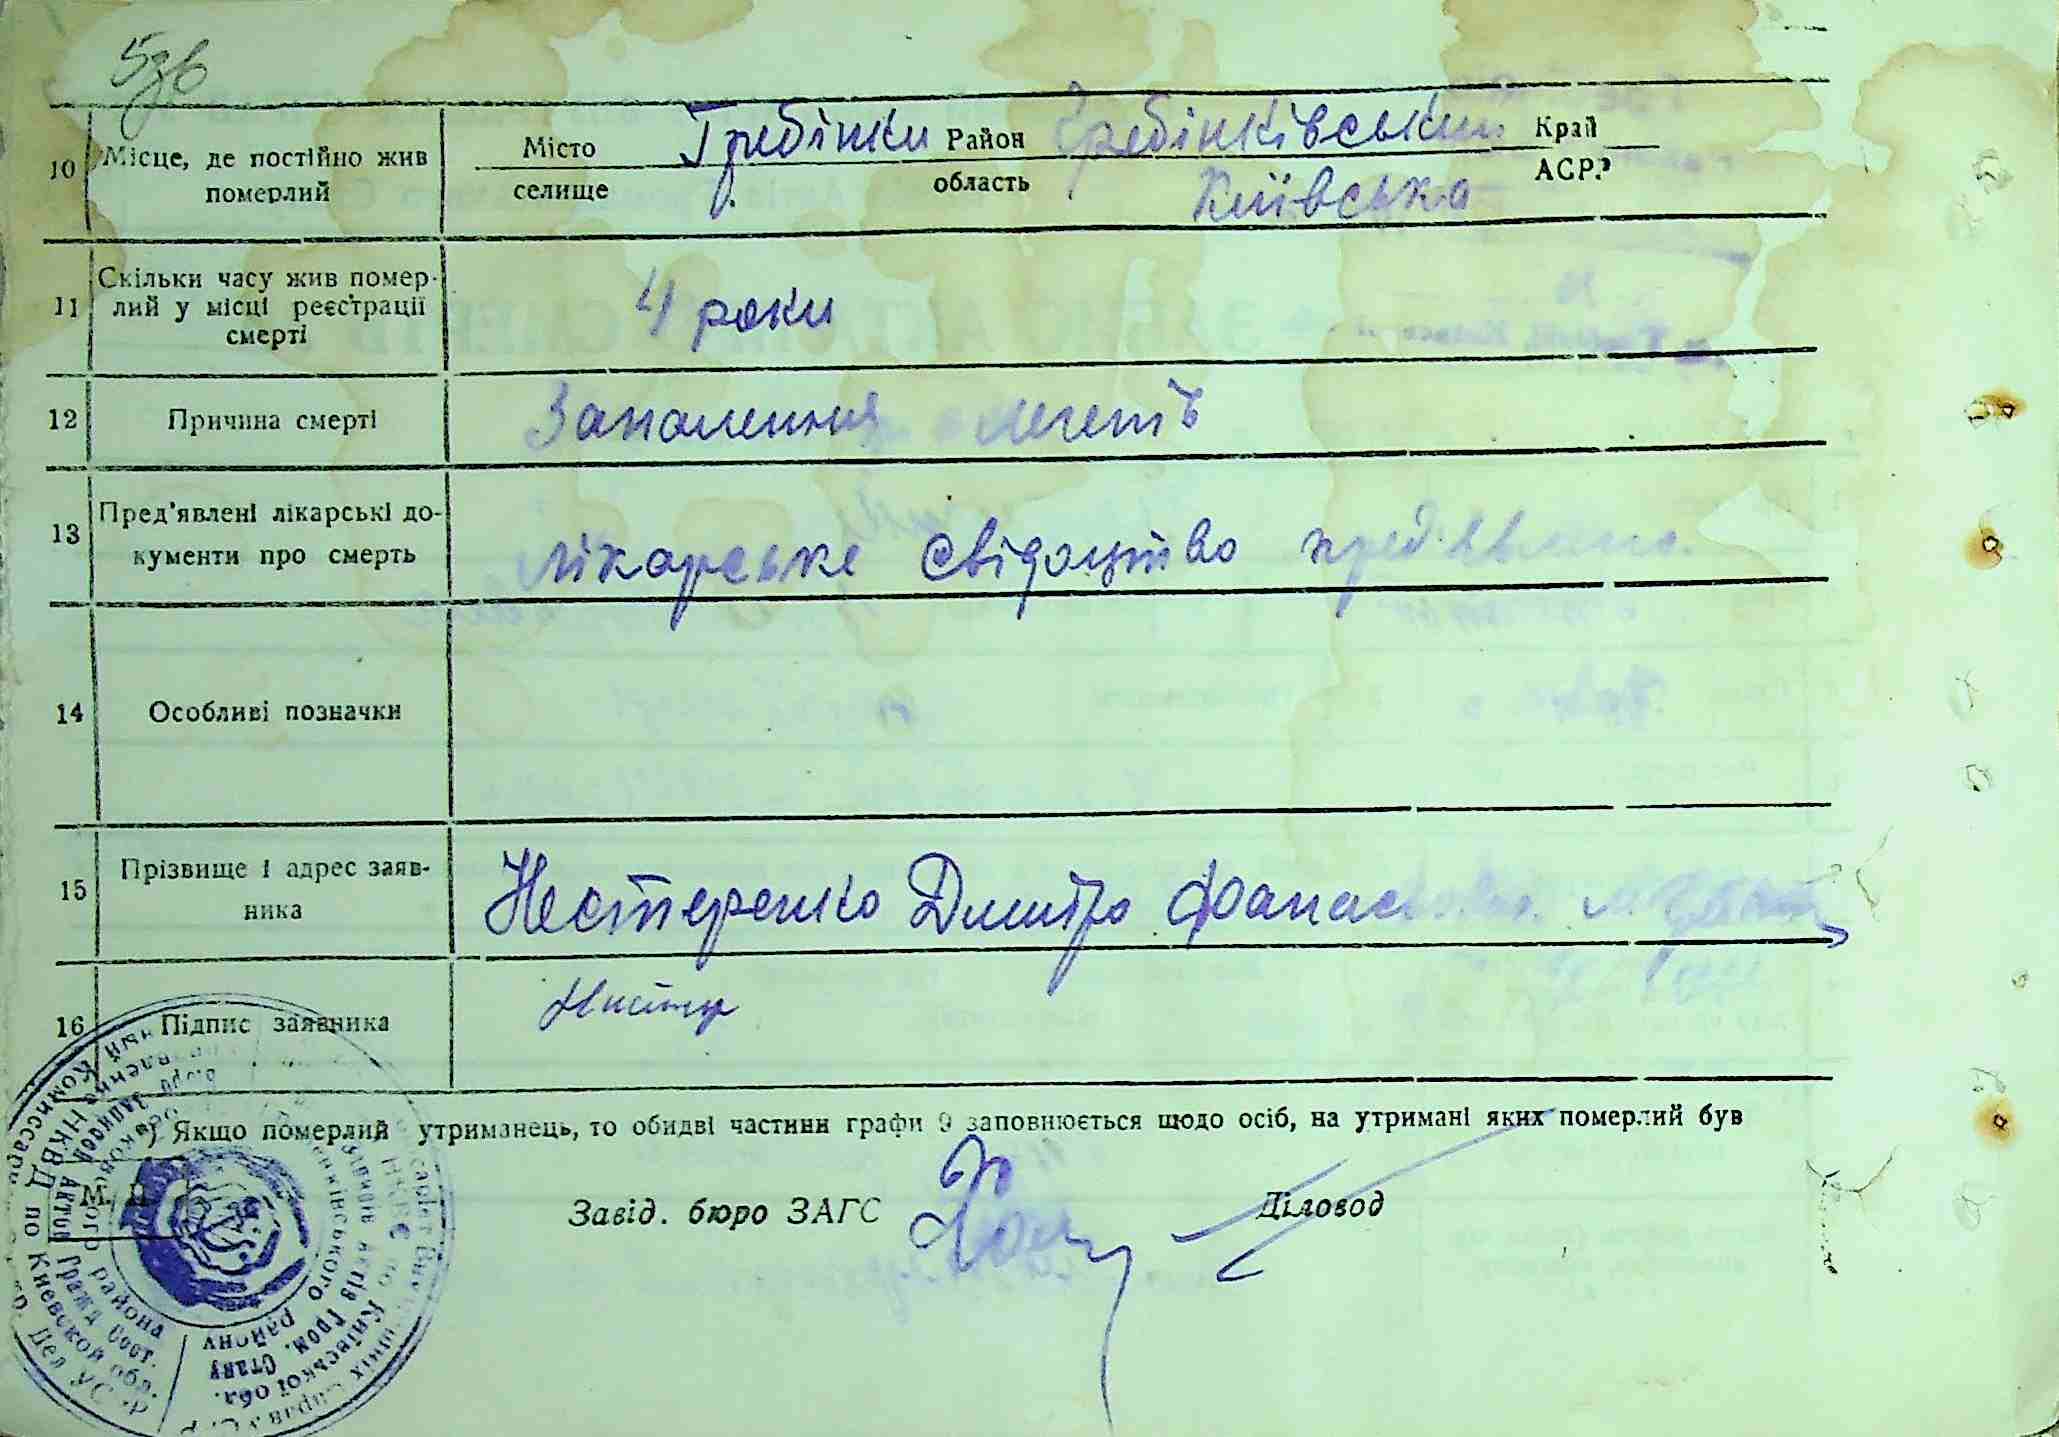 10 Місце, де постійно жив померлий
Місто Гребінки Район Гребінківський Край
селище область Київська АСРР
11 Скільки часу жив помер-
лий у місці реєстрації
смерті
4 роки
12 Причина смерті Запалення легенів
13 Пред'явлені лікарські до-
кументи про смерть
лікарське свідоцтво пред'явлено.
14 Особливі позначки
15 Прізвище і адрес заяв-
ника
Нестеренко Дмитро Фанас
16 Підпис заявника
) Якщо померлий утриманець, то обидві частини графи 9 заповнюється щодо осіб, на утримані яких померлий був
М. П.
Завід. бюро ЗАГС Діловод